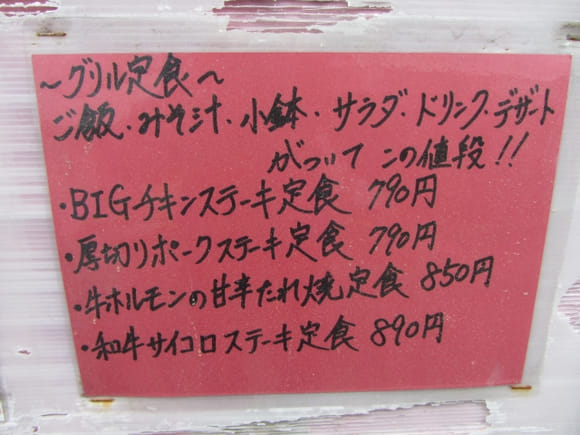 ～グリル定食～
ご飯、みそ汁、小鉢、サラダ、ドリンク、デザート
がついて この値段!!
・BIGチキンステーキ定食 790円
・厚切りポークステーキ定食 790円
・牛ホルモンの甘辛たれ焼定食 850円
・和牛サイコロステーキ定食 890円